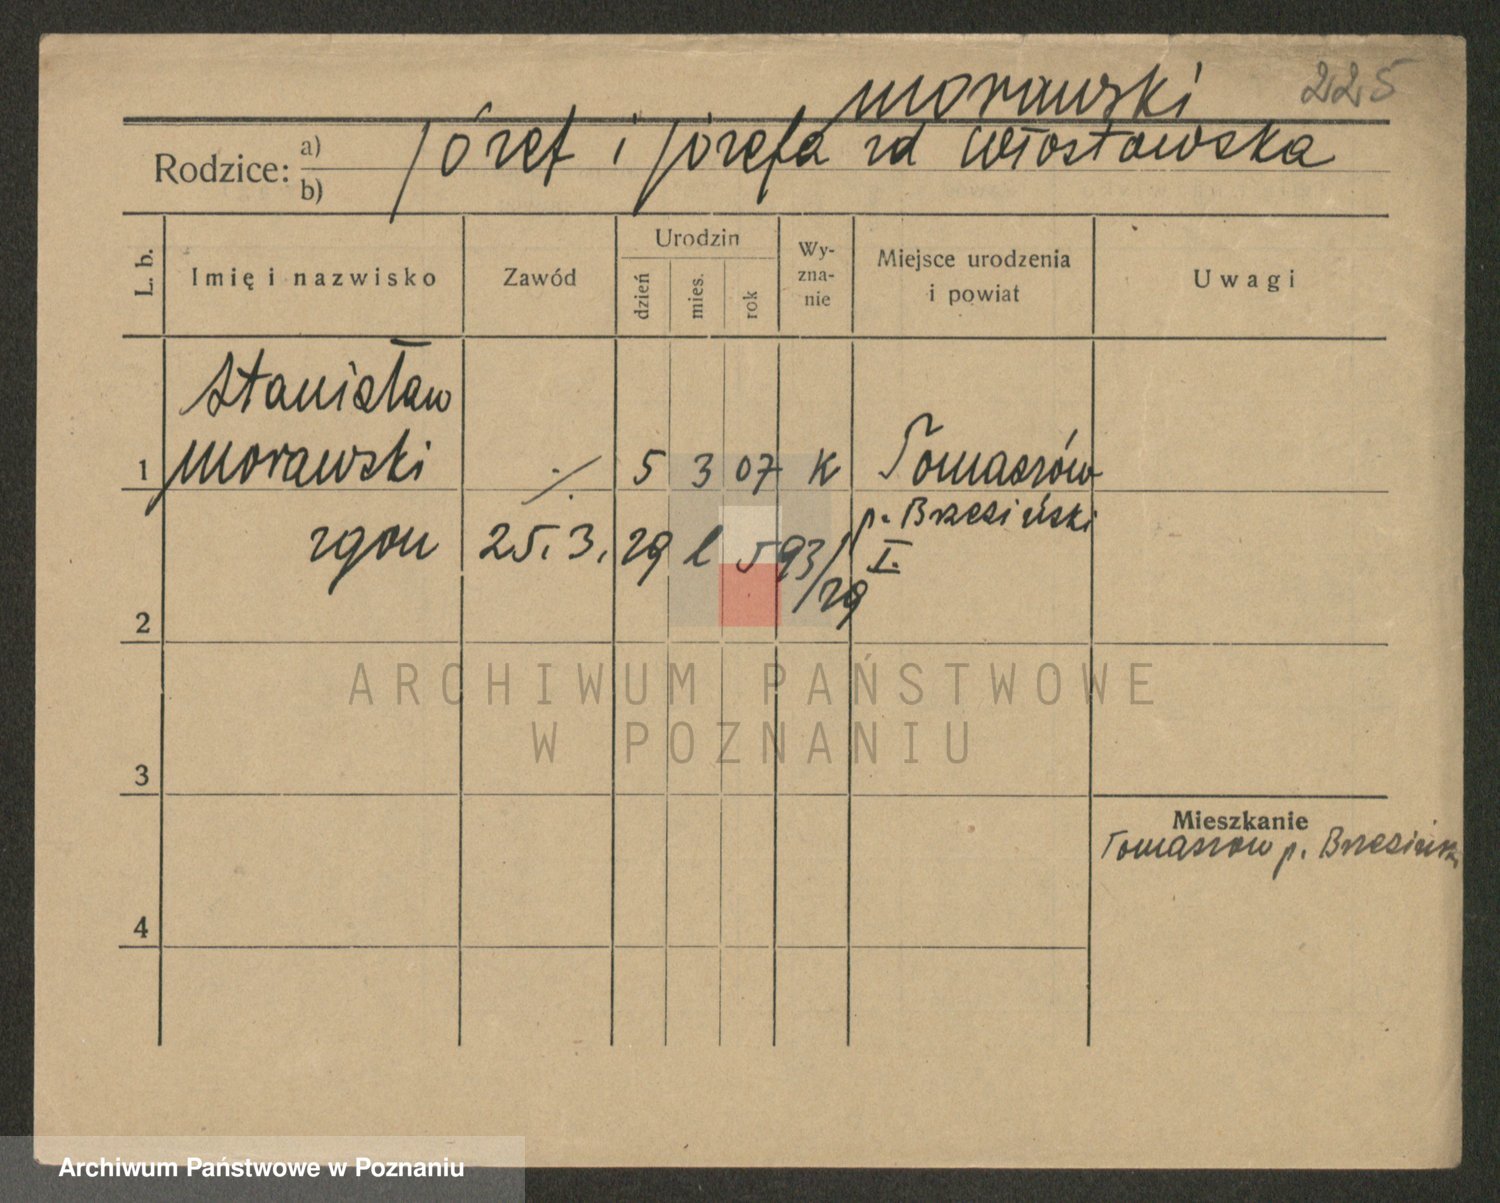 225
Morawski
Józef i Józefa zd Włostowska
Rodzice: a)
b)
L. b.
Imię i nazwisko
Zawód
Urodzin
dzień
mies.
rok
Wy-
zna-
nie
Miejsce urodzenia
i powiat
Uwagi
Stanisław
1 Morawski ·/. 5 3 07 K Tomaszów
p. Brzeziński
zgon 25. 3. 29 l 593/29 I.
2
ARCHIWUM PAŃSTWOWE
W POZNANIU
3
Mieszkanie
Tomaszów p. Brzeziński
4
Archiwum Państwowe w Poznaniu